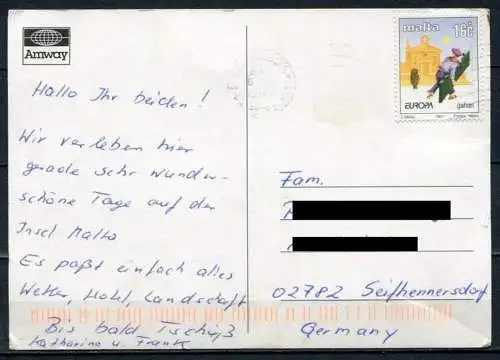 Amway
Hallo Ihr beiden!
Wir verleben hier
gerade sehr wunder-
schöne Tage auf der
Insel Malta
Es paßt einfach alles
Wetter, Hotel, Landschaft
Bis bald Tschüß
Katharina u. Frank
malta 16c
EUROPA gahan
Fam.
02782 Seifhennersdorf
Germany